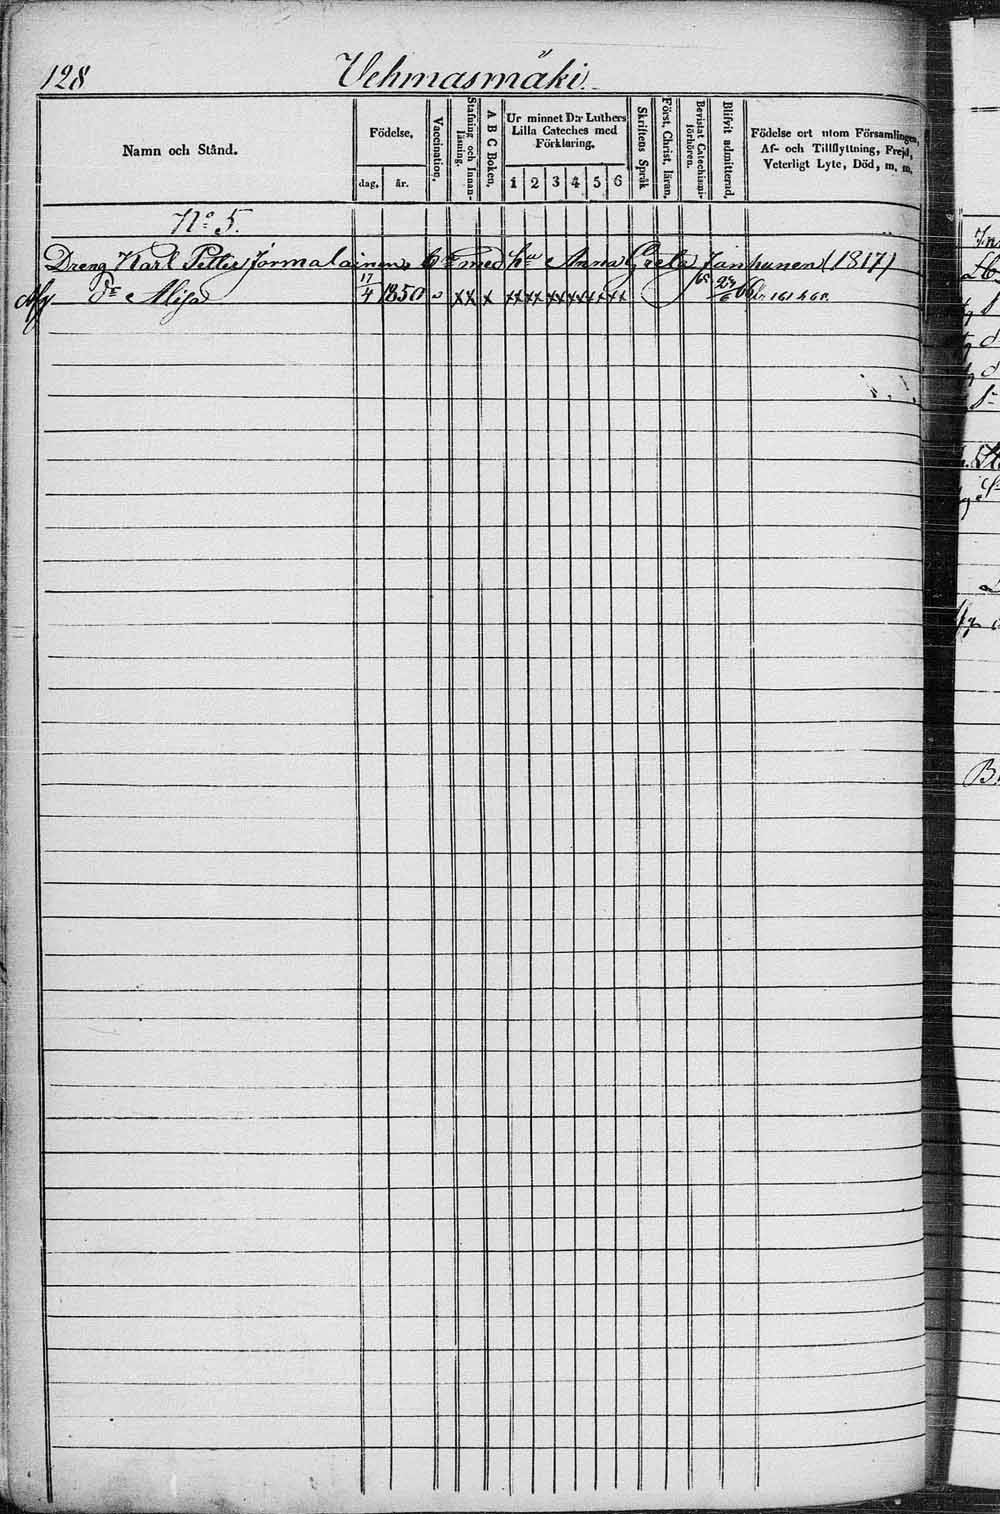 128 Vehmasmäki
Namn och Stånd.
Födelse,
dag. år.
Vaccination,
Stafning och Innan-läsning.
A B C Boken,
Ur minnet D:r Luthers
Lilla Cateches med
Förklaring.
1 2 3 4 5 6
Skriftens Språk
Först. Christ. läran,
Bevistat Catechismi-förhören.
Blifvit admitterad,
Födelse ort utom Församlingen,
Af- och Tillflyttning, Frejd,
Veterligt Lyte, Död, m. m.
No 5.
Dreng Karl Petter Jormalainens med Anna Greta Janhunen (1817)
17/4 1850